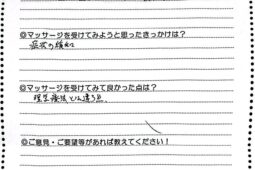 ◎マッサージを受けてみようと思ったきっかけは？
症状の緩和
◎マッサージを受けてみて良かった点は？
理学療法とは違う点
◎ご意見・ご要望等があれば教えてください！